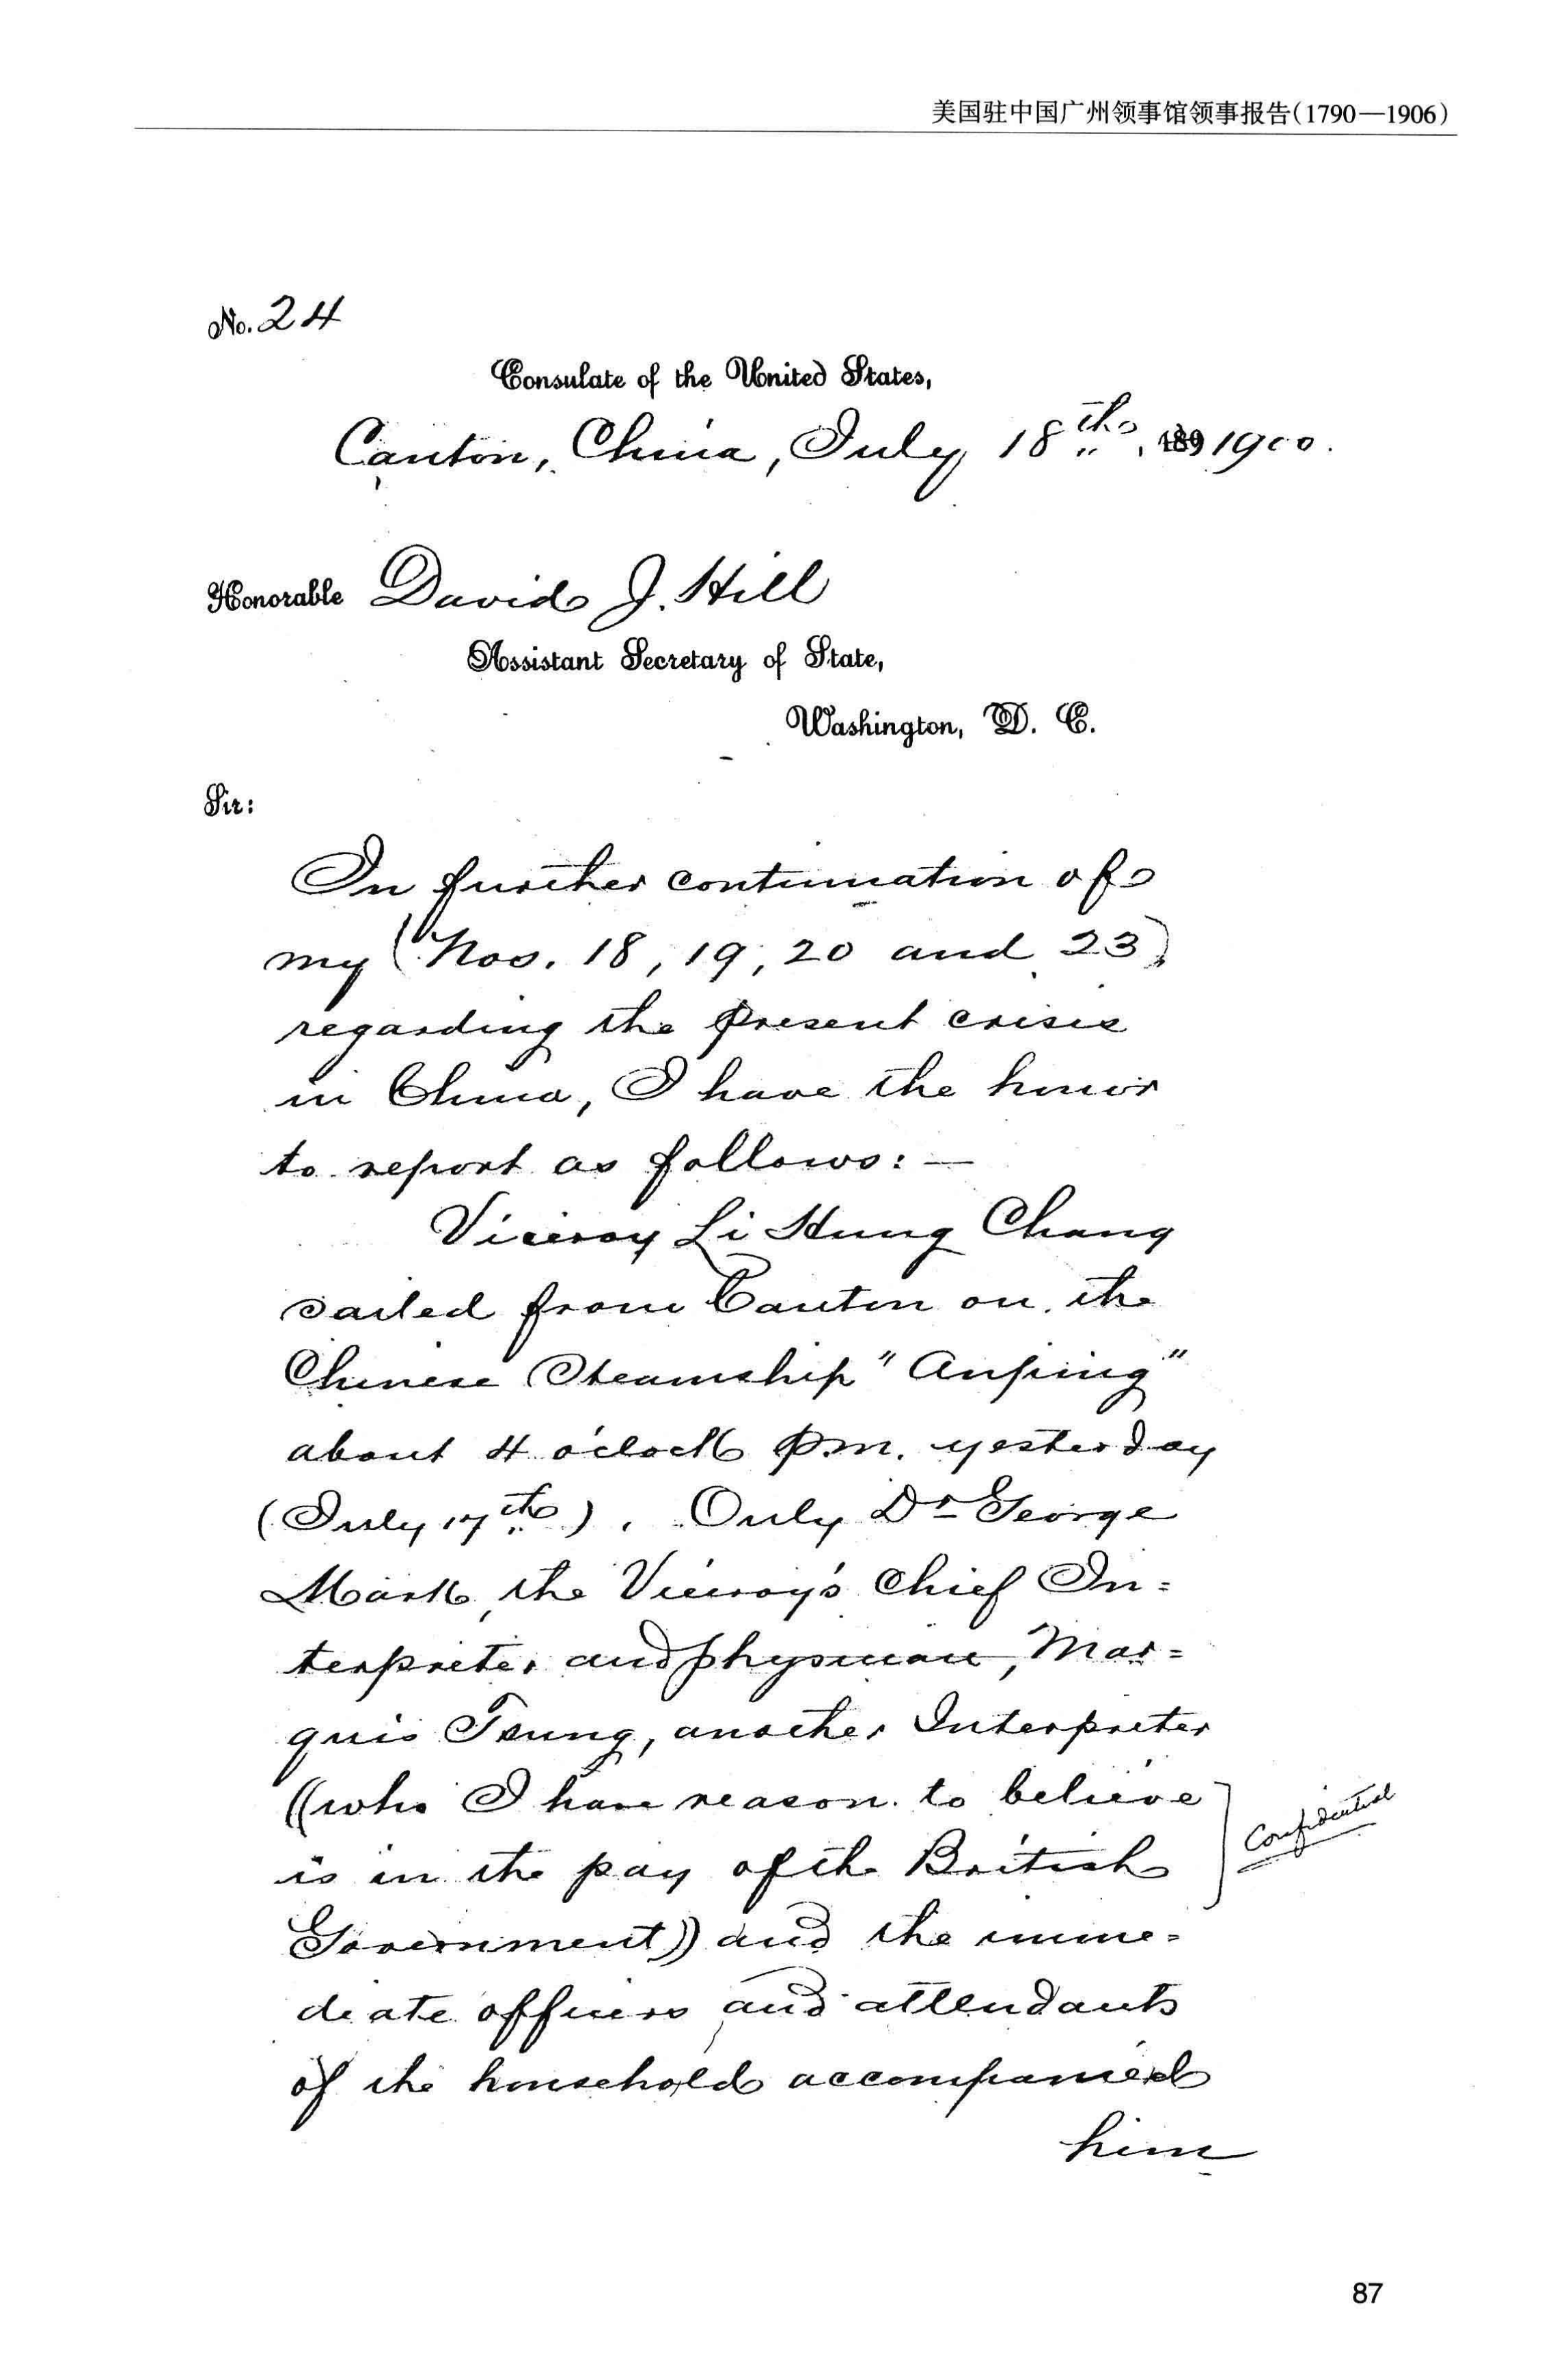 美国驻中国广州领事馆领事报告(1790—1906)
No. 24
Consulate of the United States,
Canton, China, July 18th, 189 1900.
Honorable David J. Hill
Assistant Secretary of State,
Washington, D. C.
Sir:
In further continuation of
my (Nos. 18, 19, 20 and 23)
regarding the present crisis
in China, I have the honor
to report as follows: —
Viceroy Li Hung Chang
sailed from Canton on the
Chinese Steamship "Anping"
about 4 o'clock p.m. yesterday
(July 17th). Only Dr George
Mark, the Viceroy's Chief In=
terpreter and physician, Mar=
quis Tseng, another Interpreter
((who I have reason to believe
is in the pay of the British
Government)) and the imme=
diate officers and attendants
of the household accompanied
him
Confidential
87